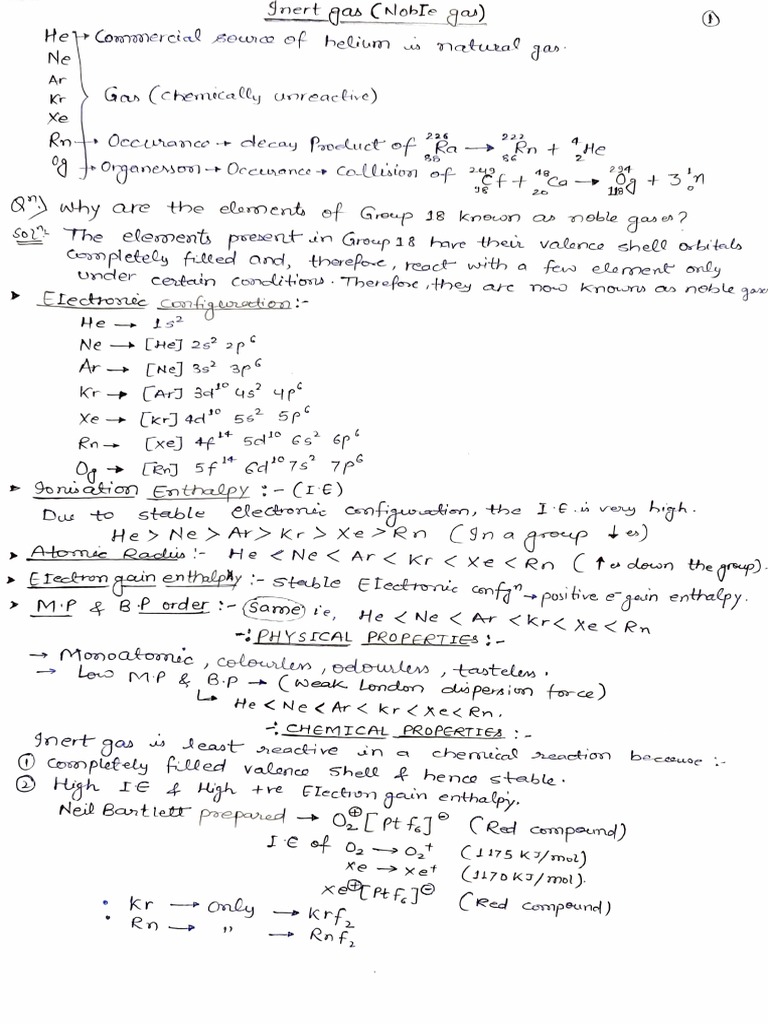 Inert gas (Noble gas)
①
He → Commercial source of helium is natural gas.
Ne
Ar
Kr } Gas (chemically unreactive)
Xe
Rn → Occurance → decay Product of ²²⁶₈₈Ra → ²²²₈₆Rn + ⁴₂He
Og → Organesson → Occurance → Collision of ²⁴⁹₉₈Cf + ⁴⁸₂₀Ca → ²⁹⁴₁₁₈Og + 3 ¹₀n
Qⁿ:) Why are the elements of Group 18 known as noble gases?
Solⁿ: The elements present in Group 18 have their valence shell orbitals
completely filled and, therefore, react with a few element only
under certain conditions. Therefore, they are now knowns as noble gases
➤ Electronic Configuration:-
He → 1s²
Ne → [He] 2s² 2p⁶
Ar → [Ne] 3s² 3p⁶
Kr → [Ar] 3d¹⁰ 4s² 4p⁶
Xe → [Kr] 4d¹⁰ 5s² 5p⁶
Rn → [Xe] 4f¹⁴ 5d¹⁰ 6s² 6p⁶
Og → [Rn] 5f¹⁴ 6d¹⁰ 7s² 7p⁶
➤ Ionisation Enthalpy :- (I.E)
Due to stable electronic configuration, the I.E. is very high.
He > Ne > Ar > Kr > Xe > Rn (In a group ↓es)
➤ Atomic Radius :- He < Ne < Ar < Kr < Xe < Rn (↑es down the group).
➤ Electron gain enthalpy :- Stable Electronic confgⁿ → positive e⁻gain enthalpy.
➤ M.P & B.P order :- (Same) ie, He < Ne < Ar < Kr < Xe < Rn
-: PHYSICAL PROPERTIES :-
→ Monoatomic, colourless, odourless, tasteless.
→ Low M.P & B.P → (Weak London dispersion force)
↳ He < Ne < Ar < Kr < Xe < Rn.
-: CHEMICAL PROPERTIES :-
Inert gas is least reactive in a chemical reaction because :-
① Completely filled valence shell & hence stable.
② High IE & High +ve Electron gain enthalpy.
Neil Bartlett prepared → O₂⊕[Ptf₆]⊖ (Red compound)
I.E of O₂ → O₂⁺ (1175 KJ/mol)
Xe → Xe⁺ (1170 KJ/mol).
Xe⊕[Ptf₆]⊖ (Red compound)
• Kr → only → Krf₂
• Rn → " → Rnf₂